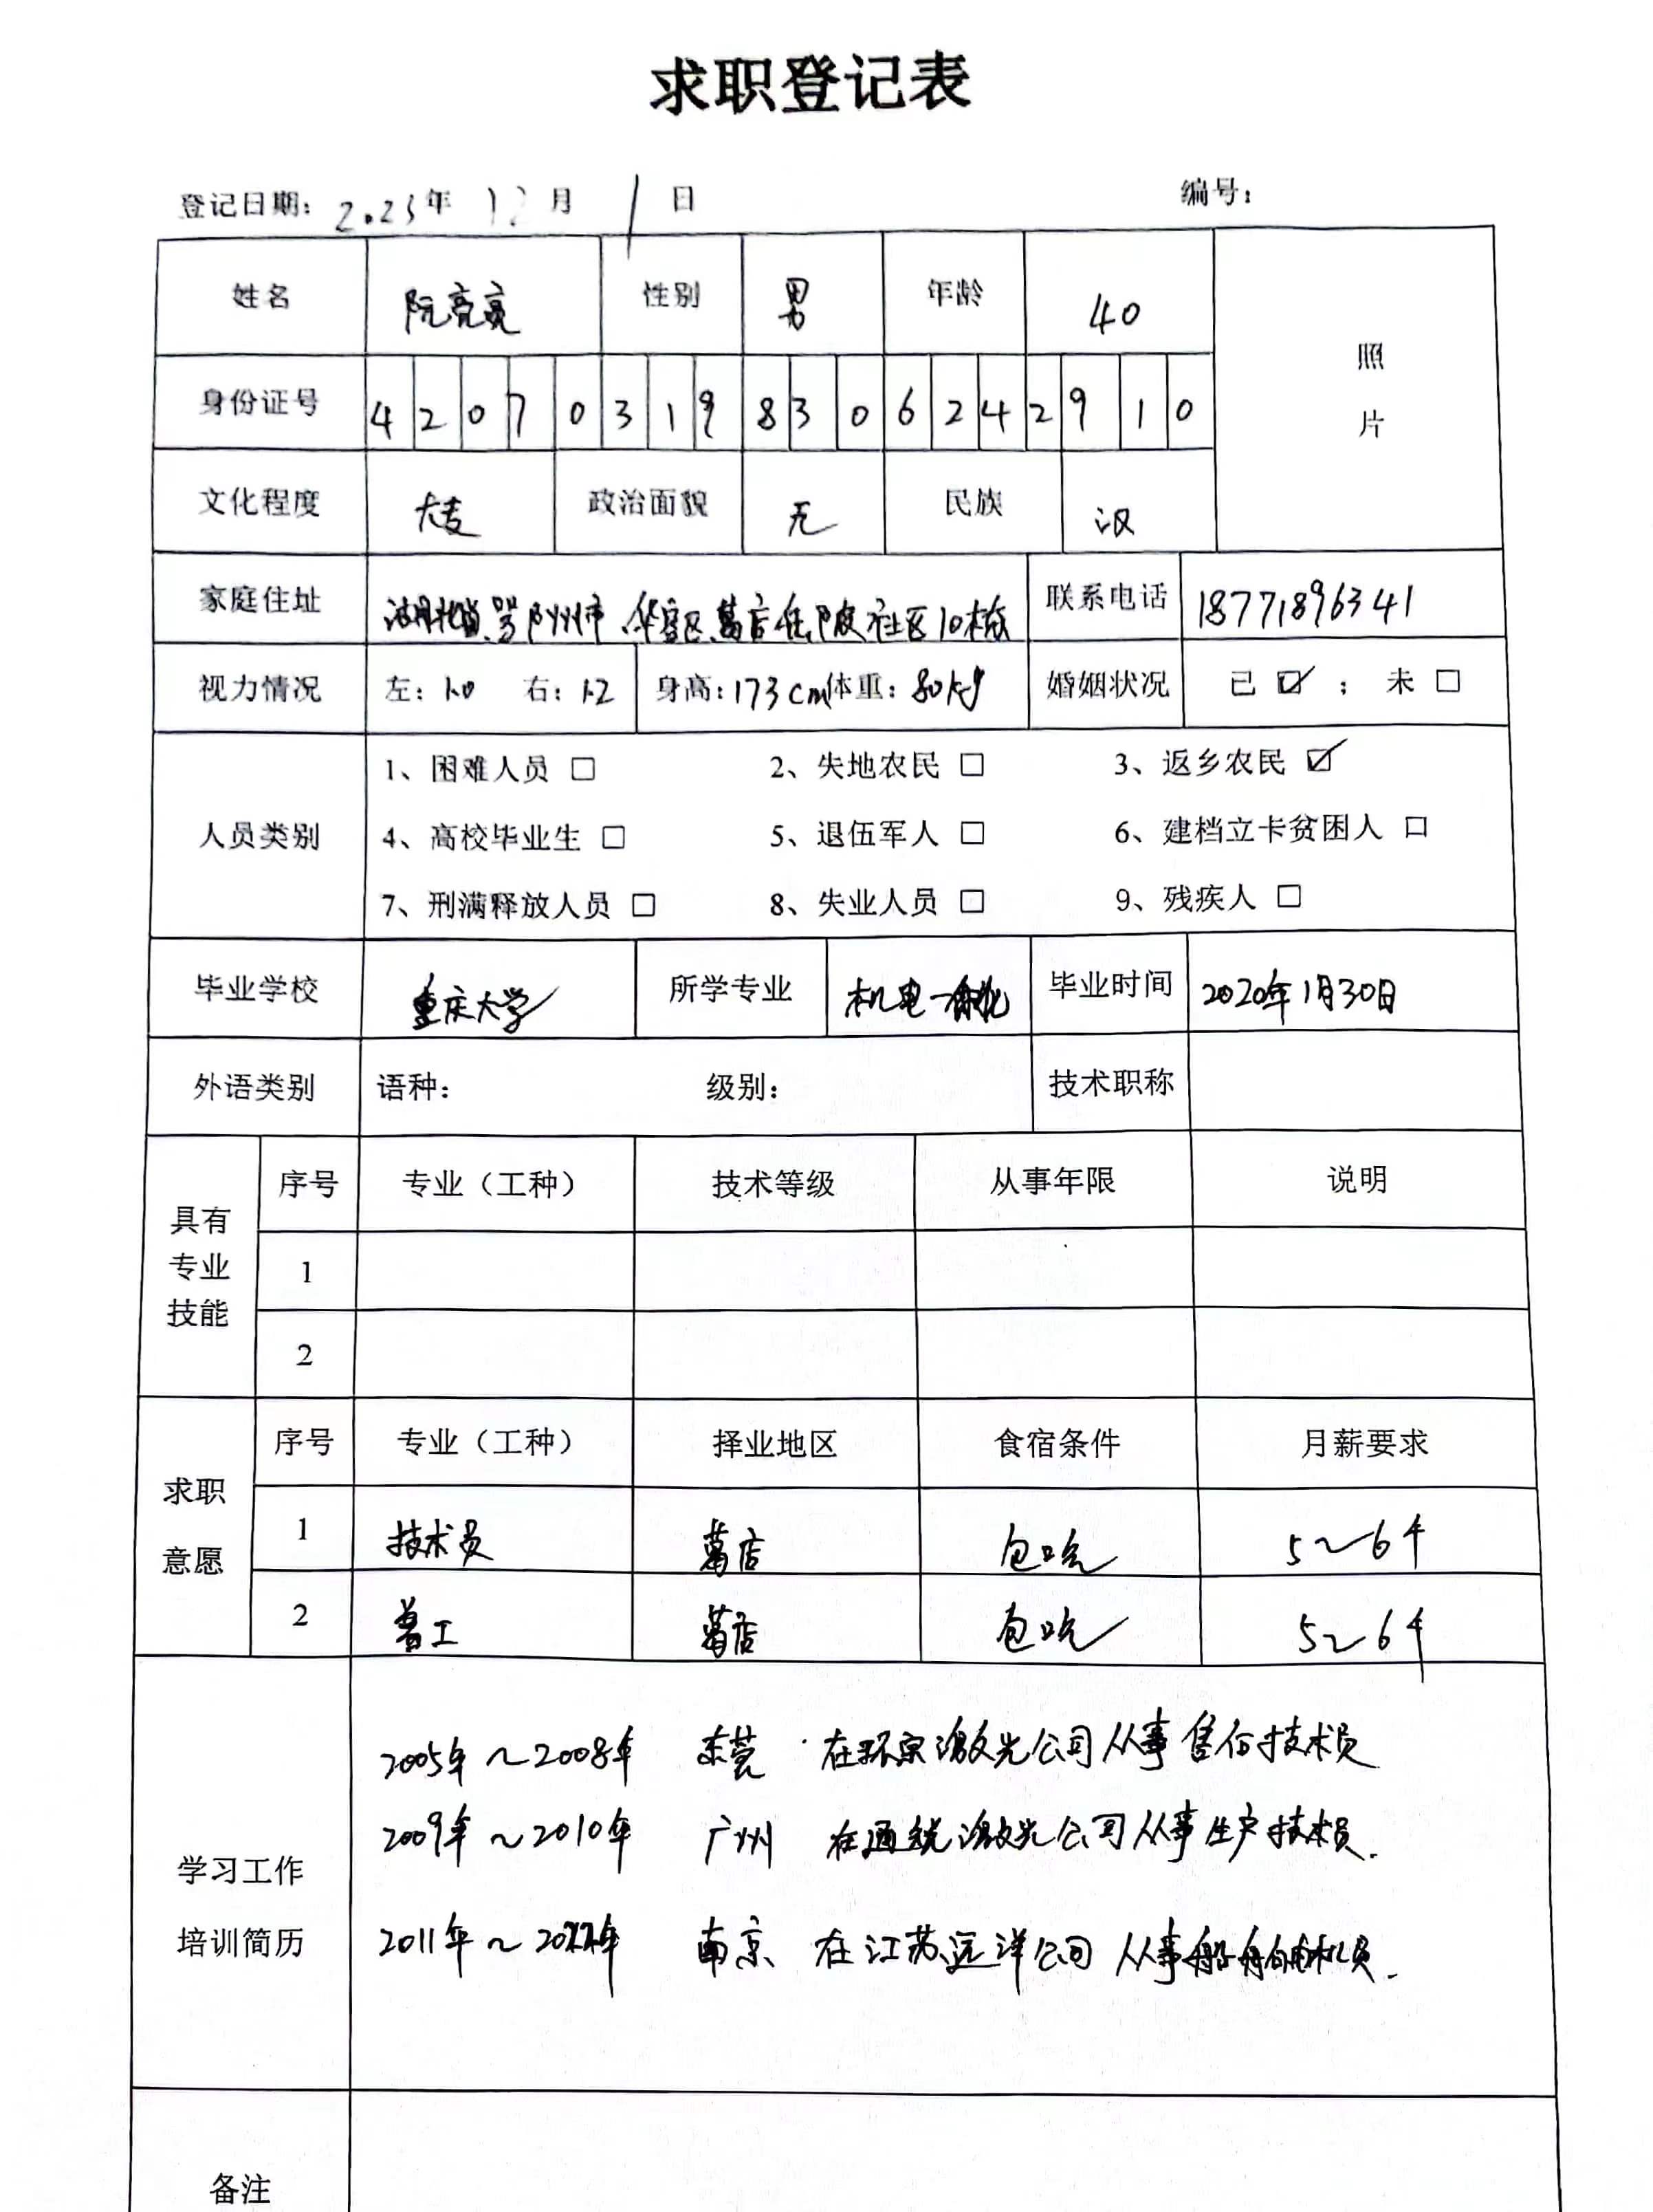 求职登记表
登记日期：2023年 12月 1日 编号：
姓名 阮亮亮 性别 男 年龄 40 照片
身份证号 420703198306242910
文化程度 大专 政治面貌 无 民族 汉
家庭住址 湖北省鄂州市华容区葛店岳陂社区10栋 联系电话 18771896341
视力情况 左：1.0 右：1.2 身高：173cm 体重：80kg 婚姻状况 已 ☑ ； 未 □
人员类别
1、困难人员 □ 2、失地农民 □ 3、返乡农民 ☑
4、高校毕业生 □ 5、退伍军人 □ 6、建档立卡贫困人 口
7、刑满释放人员 □ 8、失业人员 □ 9、残疾人 □
毕业学校 重庆大学 所学专业 机电一体化 毕业时间 2020年1月30日
外语类别 语种： 级别： 技术职称
具有专业技能 序号 专业（工种） 技术等级 从事年限 说明
1
2
求职意愿 序号 专业（工种） 择业地区 食宿条件 月薪要求
1 技术员 葛店 包吃 5～6千
2 普工 葛店 包吃 5～6千
学习工作培训简历
2005年～2008年 东莞 在环京激光公司从事售后技术员
2009年～2010年 广州 在通锐激光公司从事生产技术员.
2011年～2022年 南京 在江苏远洋公司从事船舶
备注